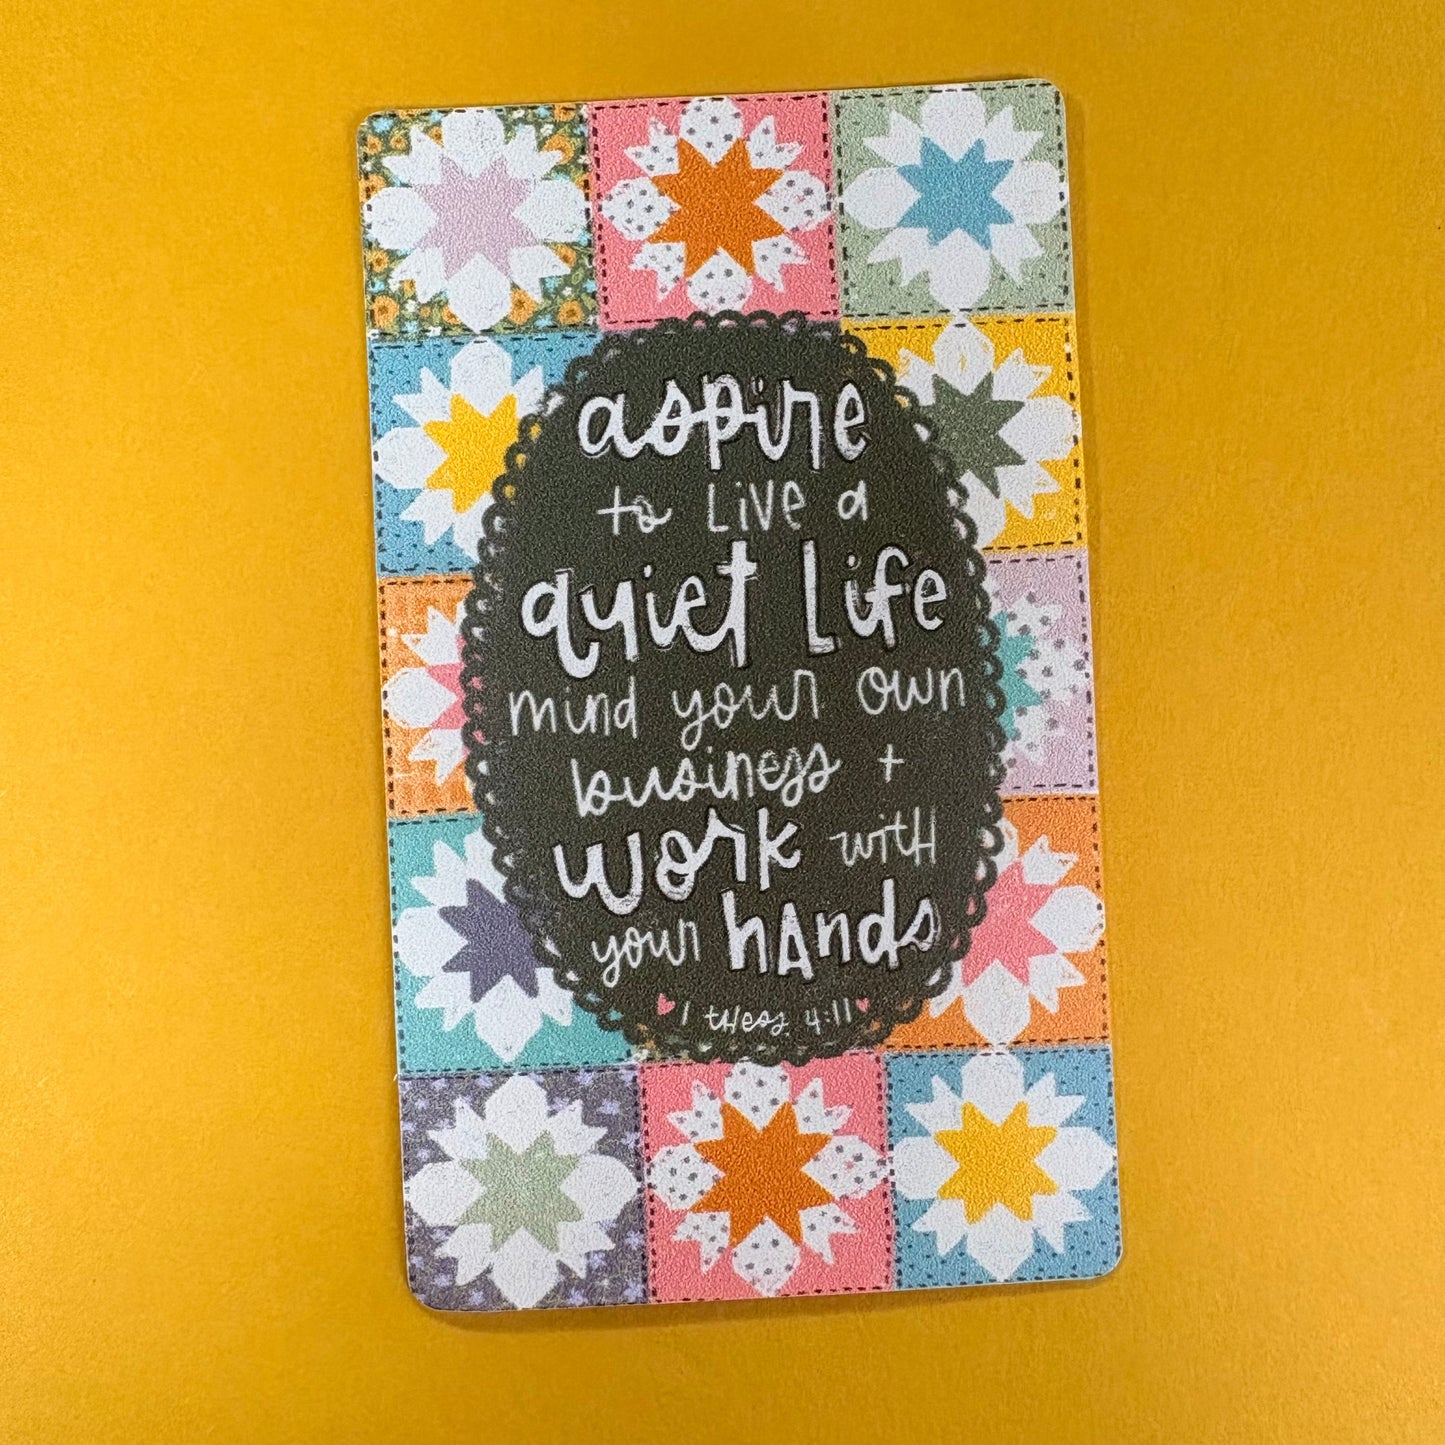 aspire
to Live a
quiet Life
mind your own
business +
work with
your hands
1 thess. 4:11